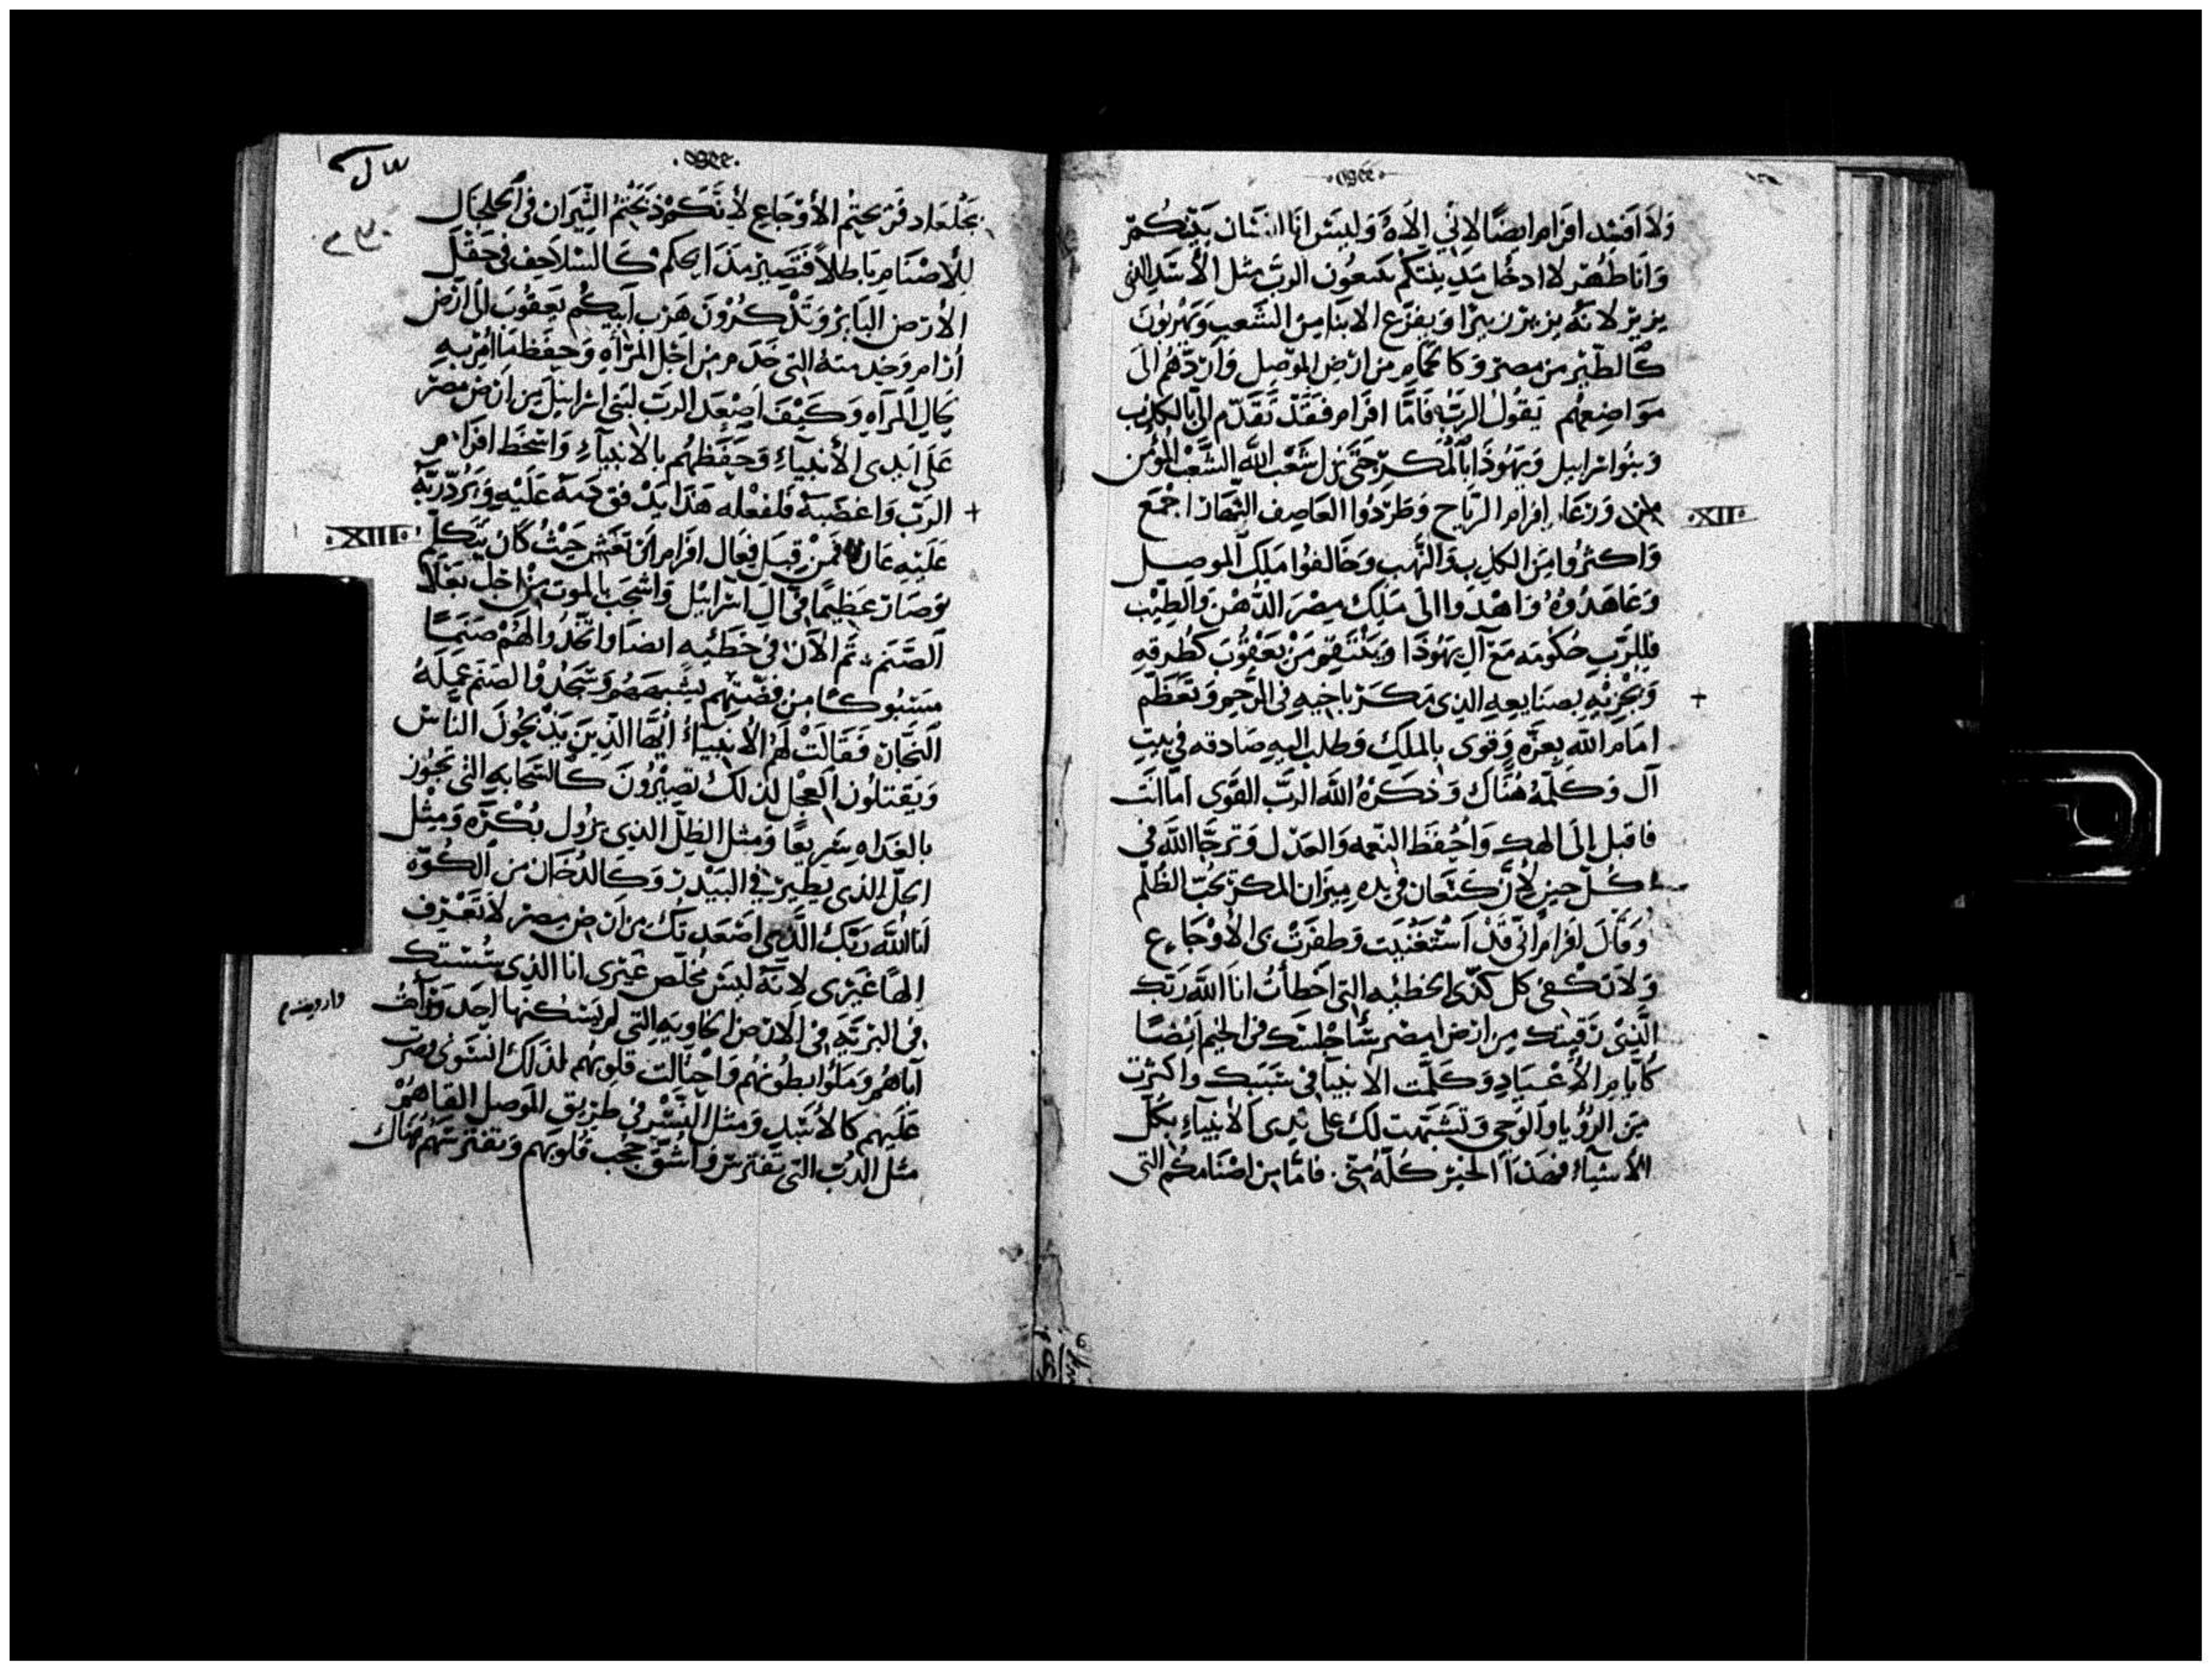 ولا افسد افرام ايضا لاني الاه وليس انا انسان بينكم
وانا طهر لا ادخل مدينتكم يتبعون الرب مثل الأسد الذي
يزير لانه يزير زييرا ويفزع الابنا من الشعب ويهربون
كالطير من مصر وكالحمام من ارض الموصل واردهم الى
مواضعهم يقول الرب فاما افرام فقد تقدم الي بالكذب
وبنوا اسرايل ويهوذا بالمكر حتى نزل شعب الله الشعب المؤمن
ورعا إفرام الرياح وطردوا العاصف النهار اجمع
XII
واكثروا من الكذب والنهب وخالفوا ملك الموصل
وعاهدوه واهدوا الى ملك مصر الدهن والطيب
فللرب حكومه مع آل يهوذا وينتقم من يعقوب كطرقه
ويجزيه بصنايعه الذي مكر باخيه في الرحم وتعظم
+
امام الله بعزه وقوى بالملك وطلب اليه صادقه في بيت
آل وكلمه هناك وذكره الله الرب القوى اما انت
فاقبل إلى الهك واحفظ النعمه والعدل وترجا الله في
كل حين لأن كنعان في يده ميزان المكر تحب الظلم
وقال افرام اني قد استغنيت وظفرت بى الأوجاع
ولا تكفي كل كدى الخطيه التي اخطأت انا الله ربك
الذى رقيتك من ارض مصر سأجلسك في الخيم أيضا
كايام الأعياد وكلمت الانبيا في سببك واكثرت
من الرؤيا والوحى وتشبهت لك على يدى الأنبياء بكل
الأشياء فهذا الخبز كله مني. فاما من اصنامكم التى
بجلعاد فذبحتم الأوجاع لأنكم ذبحتم الثيران في الجلجال
للأصنام باطلا فتصير مذابحكم كالسلاحف في حقل
الأرض الباير وتذكرون هرب ابيكم يعقوب الى ارض
ارام وخدمته التي خدم من اجل المرآه وحفظنا امر به
كال المرآه وكيف اصعد الرب لبنى اسرايل من ارض مصر
على ايدى الأنبياء وحفظهم بالأنبياء واسخط افرام
+ الرب واغضبه فلفعله هذا يدفق دمه عليه ويرد ربه
XIII
عليه عاره فمن قبل فعال افرام ان تعش حيث كان يتكلم
وصار عظيما في آل اسرايل واشجب بالموت من اجل بعلا
الصنم ثم الآن في خطئيه ايضا واتخذوا لهم صنما
مسبوكا من فضتهم يشبههم وسجدوا لصنم عمله
النجار فقالت لهم الأنبياء ايها الذين يذبحون الناس
ويقتلون العجل لذلك تصيرون كالسحابه التى تجوز
بالغداه سريعا ومثل الظل الذى يزول بكره ومثل
الحل الذى يطير في البيدر وكالدخان من الكوه
انا الله ربك الذى اصعدتك من ارض مصر لا تعرف
الها غيرى لانه ليس مخلص غيرى انا الذى سستك
في البريه في الارض الخاويه التي لم يسكنها احد
اباهم وملؤا بطونهم واختالت قلوبهم لذلك انسونى فصرت
عليهم كالأسد ومثل النسر في طريق الموصل القاهم
مثل الدب التى تفترس واشق حجب قلوبهم وتفترسهم هناك